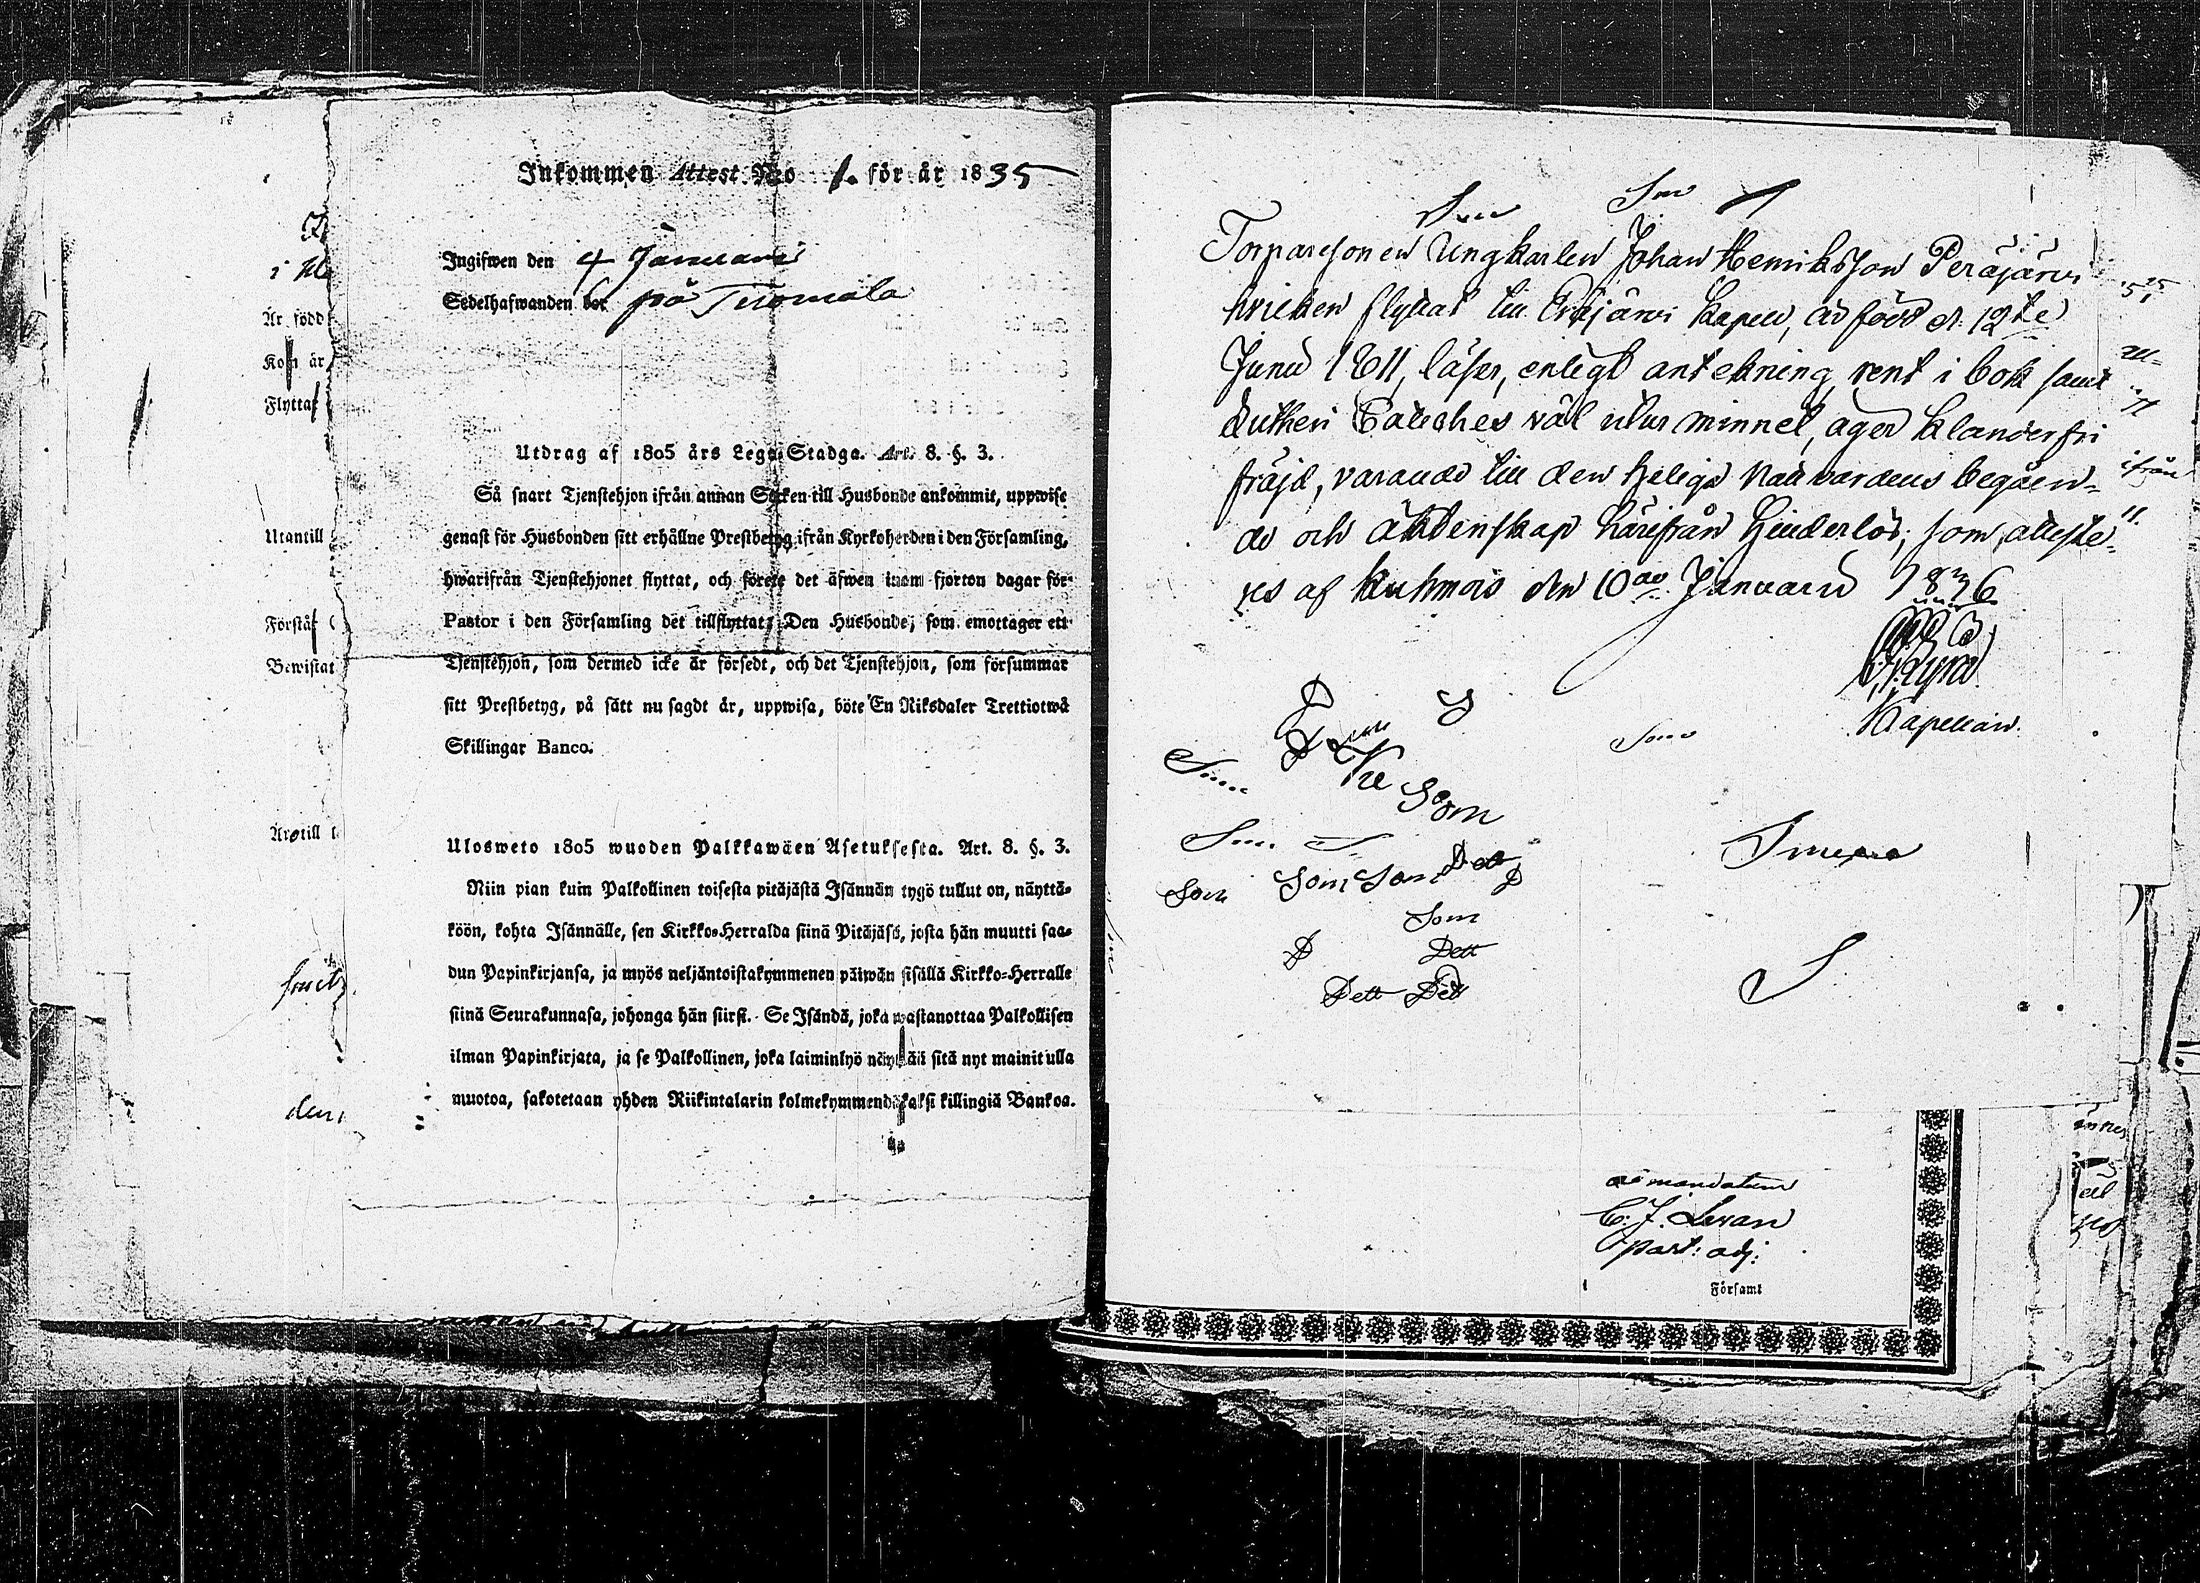 Inkommen Attest No 1. för år 1835
Ingifwen den 4 Januarii
Sedelhafwanden bor på Tuomala
i
Är född
Kom är
Flyttat
Utantill
Förstår
Bewistat
Är till
den
Utdrag af 1805 års Lego-Stadga. Art. 8. §. 3.
Så snart Tjenstehjon ifrån annan Socken till Husbonde ankommit, uppwise
genast för Husbonden sitt erhållne Prestbetyg ifrån Kyrkoherden i den Församling,
hwarifrån Tjenstehjonet flyttat, och förete det äfwen inom fjorton dagar för
Pastor i den Församling det tillflyttat; Den Husbonde, som emottager ett
Tjenstehjon, som dermed icke är försedt, och det Tjenstehjon, som försummar
sitt Prestbetyg, på sätt nu sagdt är, uppwisa, böte En Riksdaler Trettiotwå
Skillingar Banco.
Ulosweto 1805 wuoden Palkkawäen Asetuksesta. Art. 8. §. 3.
Niin pian kuin Palkollinen toisesta pitäjästä Isännän tygö tullut on, näyttä-
köön, kohta Isännälle, sen Kirkko-Herralda siinä Pitäjäsä, josta hän muutti saa-
dun Papinkirjansa, ja myös neljäntoistakymmenen päiwän sisällä Kirkko-Herralle
siinä Seurakunnasa, johonga hän siirsi. Se Isändä, joka wastanottaa Palkollisen
ilman Papinkirjata, ja se Palkollinen, joka laiminlyö näyttää sitä nyt mainitulla
muotoa, sakotetaan yhden Riikintalarin kolmekymmendäkaksi killingiä Bankoa.
Torparesonen Ungkarlen Johan Henriksson Peräjärvi
hvilken flyttat till Eräjärvi Kapell, är född d. 12te
Junii 1811, läser, enligt antekning, rent i bok samt
Lutheri Cateches väl utur minnet, äger klanderfri
fräjd, varande till den heliga Nattvardens begåen-
de och äktenskap härifrån hinderlös; som atteste-
res af Kuhmois den 10de Januarii 1836
Kapellan.
ifrån
Som
Som
Som Som Dett
D
Som
D Dett
Dett Dett
S
ad mandatum
C. J. Levan
past: adj:
Församl